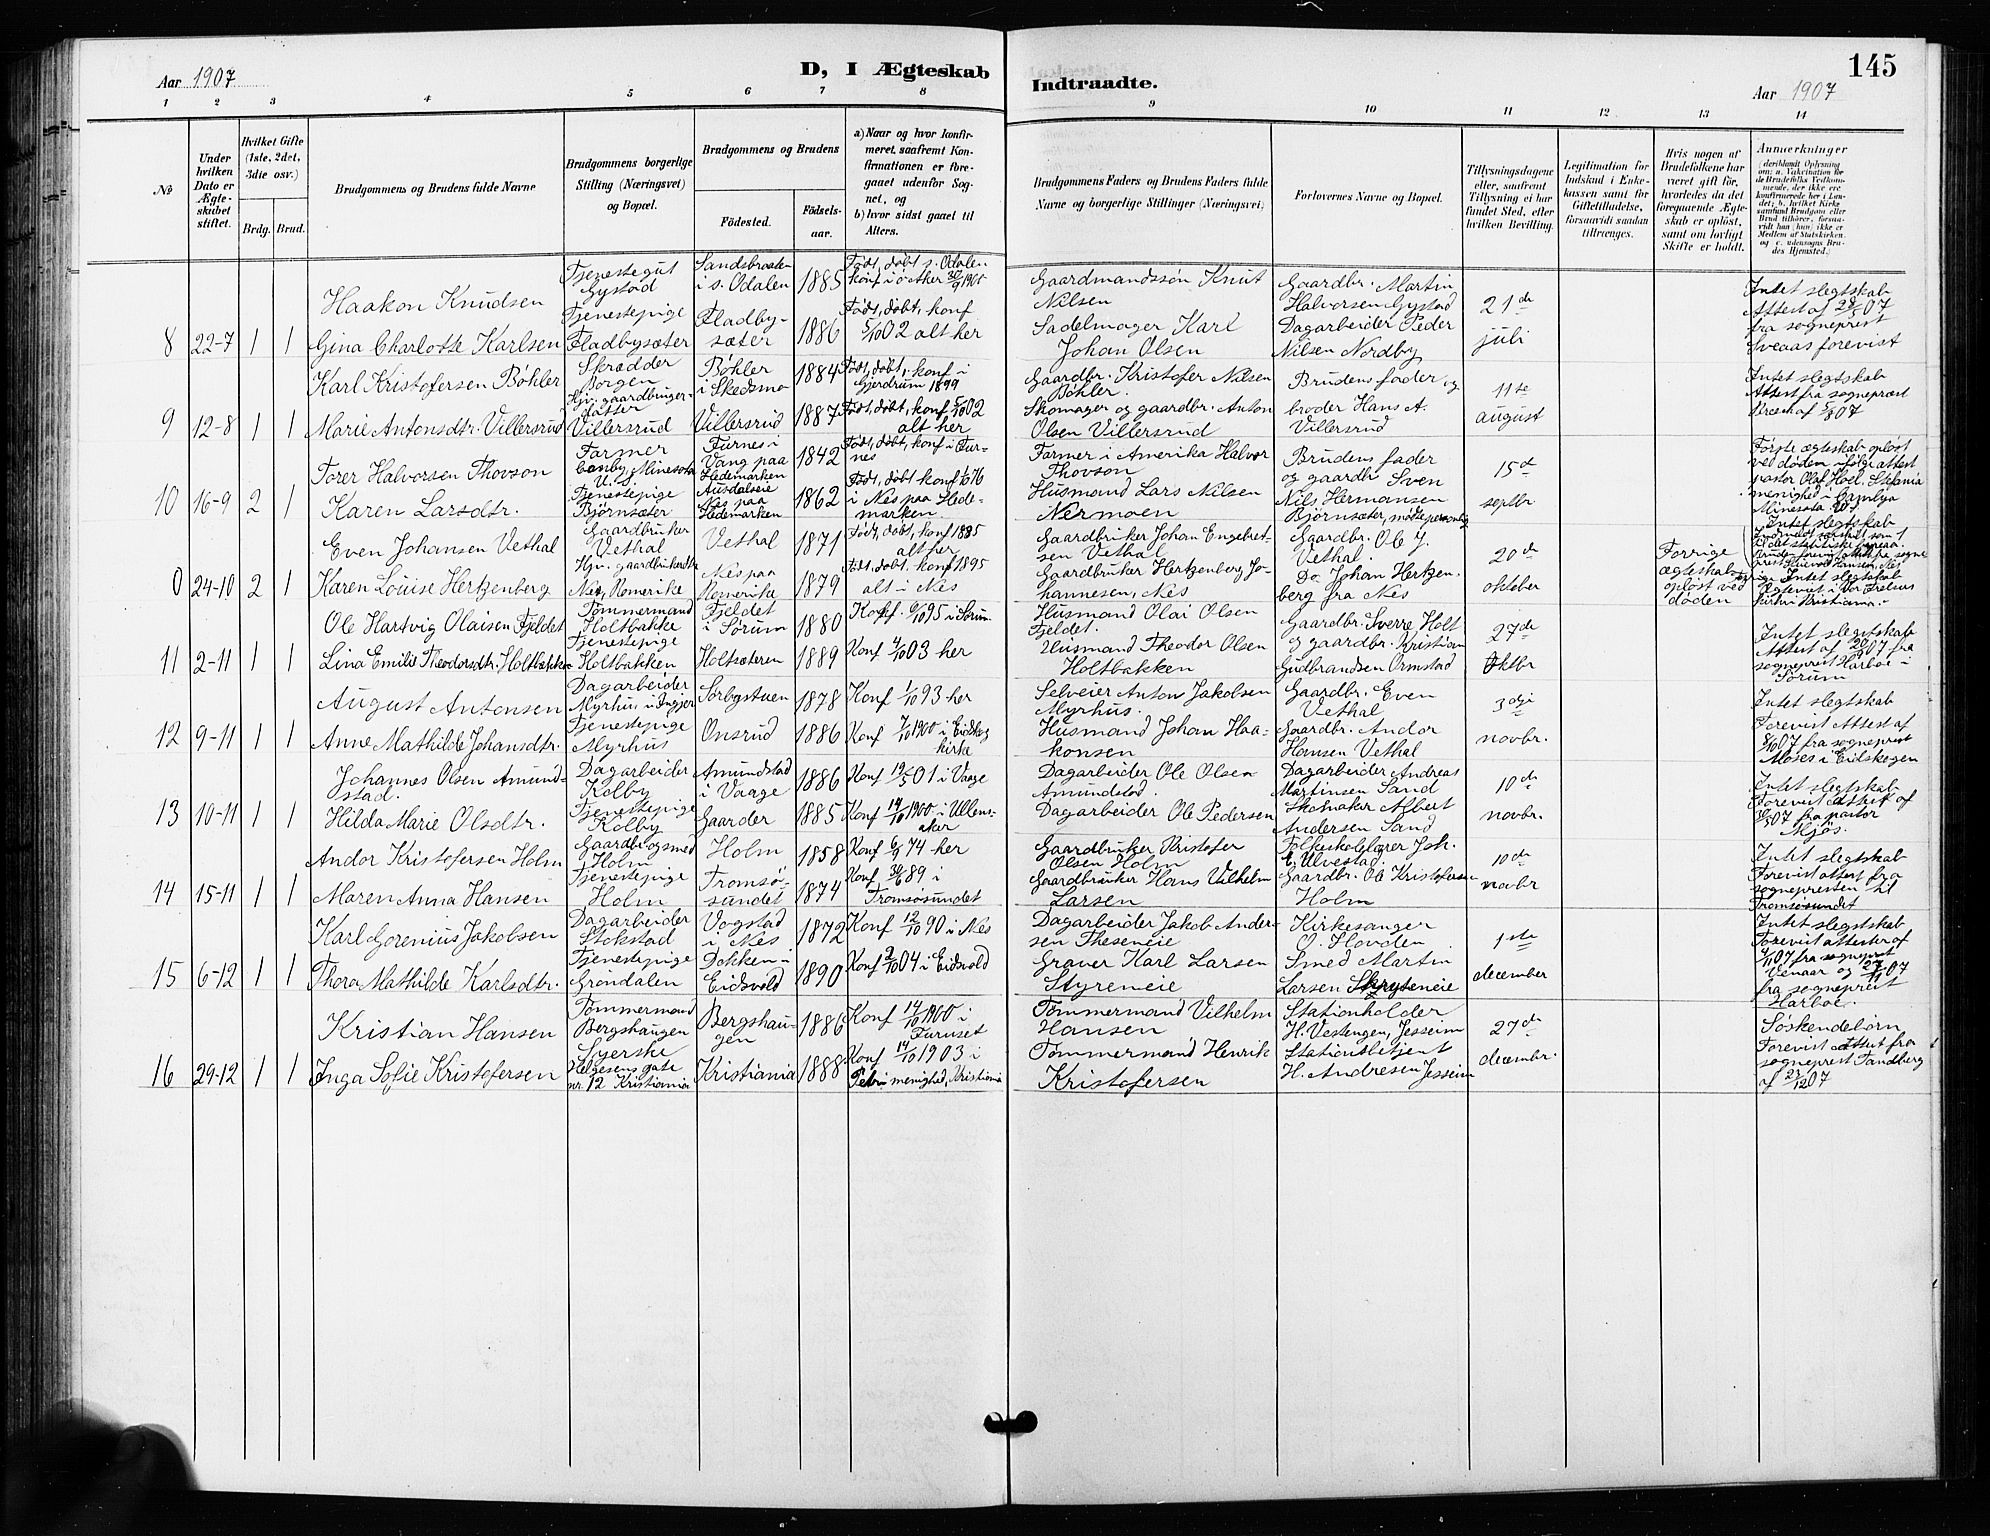 Aar 1907
D, I Ægteskab
Indtraadte.
145
Aar 1907
1 2 3 4 5 6 7 8 9 10 11 12 13 14
No
Under hvilken Dato er Ægteskabet stiftet.
Hvilket Gifte (1ste, 2det, 3die osv.)
Brdg. Brud.
Brudgommens og Brudens fulde Navne
Brudgommens borgerlige Stilling (Næringsvei) og Bopæl.
Brudgommens og Brudens
Fødested.
Fødselsaar.
a) Naar og hvor konfirmeret, saafremt Konfirmationen er foregaaet udenfor Sognet, og
b) hvor sidst gaaet til Alters.
Brudgommens Faders og Brudens Faders fulde Navne og borgerlige Stillinger (Næringsvei)
Forlovernes Navne og Bopæl.
Tillysningsdagene eller, saafremt Tillysning ei har fundet Sted, efter hvilken Bevilling.
Legitimation for Indskud i Enkekassen samt for Giftetilladelse, forsaavidt saadan tiltrænges.
Hvis nogen af Brudefolkene har været gift før, hvorledes da det foregaaende Ægteskab er opløst, samt om lovligt Skifte er holdt.
Anmærkninger
(deriblandt Oplysning om: a. Vakcination for de Brudefolks Vedkommende, der ikke ere konfirmerede her i Landet; b. hvilket Kirkesamfund Brudgom eller Brud tilhører, forsaavidt han (hun) ikke er Medlem af Statskirken, og c. udensogns Brudes Hjemsted.)
8 22-7 1 1
Haakon Knudsen
Tjenestegut Gystad
Sandsbraaten i s. Odalen
1885
Født, døbt s. Odalen konf i ø. Aker 30/9 1900
Gaardmandssøn Knut Nilsen
Gaardbr. Martin Halvorsen Gystad
21de juli
Intet slegtskab Attest af 28/5 07 fra sogneprest Sveaas forevist
Gina Charlotte Karlsen
Tjenestepige Fladbysæter
Fladbysæter
1886
Født, døbt, konf 5/10 02 alt her
Sadelmager Karl Johan Olsen
Dagarbeider Peder Nilsen Nordby
9 12-8 1 1
Karl Kristofersen Bøhler
Skrædder Borgen
Bøhler i Skedsmo
1884
Født, døbt, konf i Gjerdrum 1899
Gaardbr. Kristofer Nilsen Bøhler.
Brudens fader og broder Hans A. Villersrud
11te august
Intet slegtskab Attest fra sogneprest
Marie Antonsdtr. Villersrud
Hjv. gaardbruger-datter Villersrud
Villersrud
1887
Født, døbt, konf 5/10 02 alt her
Skomager og gaardbr. Anton Olsen Villersrud
10 16-9 2 1
Torer Halvorsen Thovson
Farmer Canby, Minesota U.S.
Furnes i Vang paa Hedemarken
1842
Født, døbt, konf i Furnes
Farmer i Amerika Halvor Thovson
Brudens fader og gaardbr Sven Nils Hermansen Bjørnsæter, møtte personlig
15de septbr
Første ægteskab opløst ved døden ifølge attest pastor Olaf Holl, Stefania menighed i Canby Minesota
Intet slegtskab
Karen Larsdtr.
Tjenestepige Bjørnsæter
Nes paa Hedemarken
1862
Født, døbt konf 1876 i Nes paa Hedemarken
Husmand Lars Nilsen Nermoen
0 24-10 2 1
Even Johansen Vethal
Gaardbruker Vethal
Vethal
1871
Født, døbt, konf 1885 alt her
Gaardbruker Johan Engebretsen Vethal
Gaardbr. Ole J. Vethal.
20de oktober
Forrige ægteskab opløst ved døden
Intet slegtskab
Karen Louise Hertzenberg
Hjv. gaardbrukerdtr Nes, Romerike
Nes paa Romerike
1879
Født, døbt, konf 1895 alt i Nes
Gaardbruker Hertzenberg Johannesen, Nes
Do Johan Hertzenberg fra Nes
11 2-11 1 1
Ole Hartvig Olaisen Fjeldet
Tømmermand Holtbakke
Fjeldet i Sørum
1880
Konf. 6/10 95 i Sørum
Husmand Olai Olsen Fjeldet.
Gaardbr. Sverre Holt og gaardbr. Kristian Gudbrandsen Ormstad
27de Oktbr
Intet slegtskab Attest af 20/9 07 fra sogneprest Harboe i Sørum
Lina Emilie Theodorsdtr. Holtbakken
Tjenestepige Holtbakken
Holtsæteren
1889
Konf 4/10 03 her
Husmand Theodor Olsen Holtbakken
12 9-11 1 1
August Antonsen
Dagarbeider Myrhus
Sørbystuen
1878
Konf 1/10 93 her
Selveier Anton Jakobsen Myrhus.
Gaardbr. Even Vethal
3die novbr.
Intet slegtskab Forevist Attest af 8/10 07 fra sogneprest Moses i Eidskogen
Anne Mathilde Johansdtr.
Tjenestepige Myrhus
Onsrud
1886
Konf 7/10 1900 i Eidskog kirke
Husmand Johan Haakonsen
Gaardbr. Andor Hansen Vethal
13 10-11 1 1
Johannes Olsen Amundstad.
Dagarbeider Kolby
Amundstad i Vaage
1886
Konf 19/5 01 i Vaage
Dagarbeider Ole Olsen Amundstad.
Dagarbeider Andreas Martinsen Sand
10de novbr.
Intet slegtskab Forevist Attest af 8/8 07 fra pastor Mjøs.
Hilda Marie Olsdtr.
Tjenestepige Kolby
Gaarder
1885
Konf 14/10 1900 i Ullensaker
Dagarbeider Ole Pedersen
Skomaker Albert Andersen Sand
14 15-11 1 1
Andor Kristofersen Holm
Gaardbr. og smed Holm
Holm
1858
Konf 6/9 74 her
Gaardbruker Kristofer Olsen Holm
Folkeskolelærer Joh. E. Ulvestad.
10de novbr
Intet slegtskab Forevist attest fra sognepresten til Tromsøsundet
Maren Anna Hansen
Tjenestepige Holm
Tromsøsundet
1874
Konf 30/6 89 i Tromsøsundet
Gaardbruker Hans Vilhelm Larsen
Gaardbr. Ole Kristofersen Holm
15 6-12 1 1
Karl Gorenius Jakobsen
Dagarbeider Stokstad
Vogstad i Nes
1872
Konf 12/10 90 i Nes
Dagarbeider Jakob Andersen Theseneie
Kirkesanger O. Hovden
1ste december
Intet slegtskab Forevist attester af 4/11 07 fra sogneprest Venaar og 27/11 07 fra sogneprest Harboe.
Thora Mathilde Karlsdtr.
Tjenestepige Grøndalen
Dokken i Eidsvold
1890
Konf 2/10 04 i Eidsvold
Graver Karl Larsen Styreneie
Smed Martin Larsen Styreneie
16 29-12 1 1
Kristian Hansen
Tømmermand Bergshaugen
Bergshaugen
1886
Konf 14/10 1900 i Furuset
Tømmermand Vilhelm Hansen
Stationholder H. Vestengen, Jesseim
27de decembr.
Søskendebørn Forevist Attest fra sogneprest Tandberg af 23/12 07
Inga Sofie Kristofersen
Syerske Helgesens gate nr. 12 Kristiania
Kristiania
1888
Konf 14/10 1903 i Petri menighed, Kristiania
Tømmermand Henrik Kristofersen
Stationsbetjent H. Andresen Jesseim